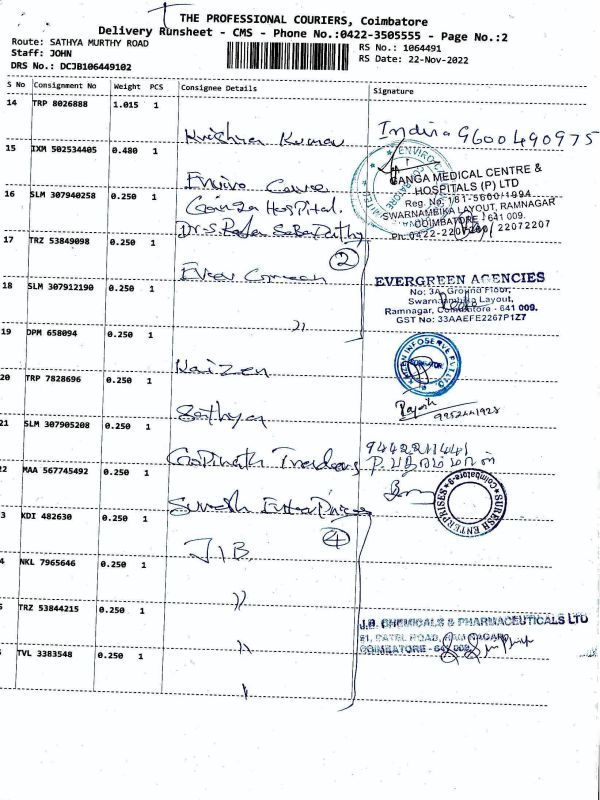 THE PROFESSIONAL COURIERS, Coimbatore
Delivery Runsheet - CMS - Phone No.:0422-3505555 - Page No.:2
Route: SATHYA MURTHY ROAD
Staff: JOHN
DRS No.: DCJB106449102
RS No.: 1064491
RS Date: 22-Nov-2022
S No Consignment No Weight PCS Consignee Details Signature
14 TRP 8026888 1.015 1
Krithra Kumar Indira 9600490975
15 IXM 502534405 0.480 1
Enviro Care
GANGA MEDICAL CENTRE &
HOSPITALS (P) LTD
16 SLM 307940258 0.250 1
Ganga Hospital.
Reg. No. 181-5600/1994
SWARNAMBIKA LAYOUT, RAMNAGAR
COIMBATORE / 641 009.
Dr. S. Raja Sabapathy
17 TRZ 53849098 0.250 1
2
Ever Green
EVERGREEN AGENCIES
No: 3A, Ground Floor,
Swarnaambika Layout,
Ramnagar, Coimbatore - 641 009.
GST No: 33AAEFE2267P1Z7
18 SLM 307912190 0.250 1
"
19 DPM 658094 0.250 1
Kaizen
KAIZEN INFOSERVE PVT LTD
20 TRP 7828696 0.250 1
Sathya
Rajesh
9952441928
21 SLM 307905208 0.250 1
Gopinath Traders
9442211441
2 MAA 567745492 0.250 1
Suresh Enterprises
SURESH ENTERPRISES
Coimbatore-9
3 KDI 482630 0.250 1
4
J.B
4 NKL 7965646 0.250 1
"
5 TRZ 53844215 0.250 1
J.B. CHEMICALS & PHARMACEUTICALS LTD
91, PATEL ROAD, RAM NAGAR
COIMBATORE - 641 009
"
TVL 3383548 0.250 1